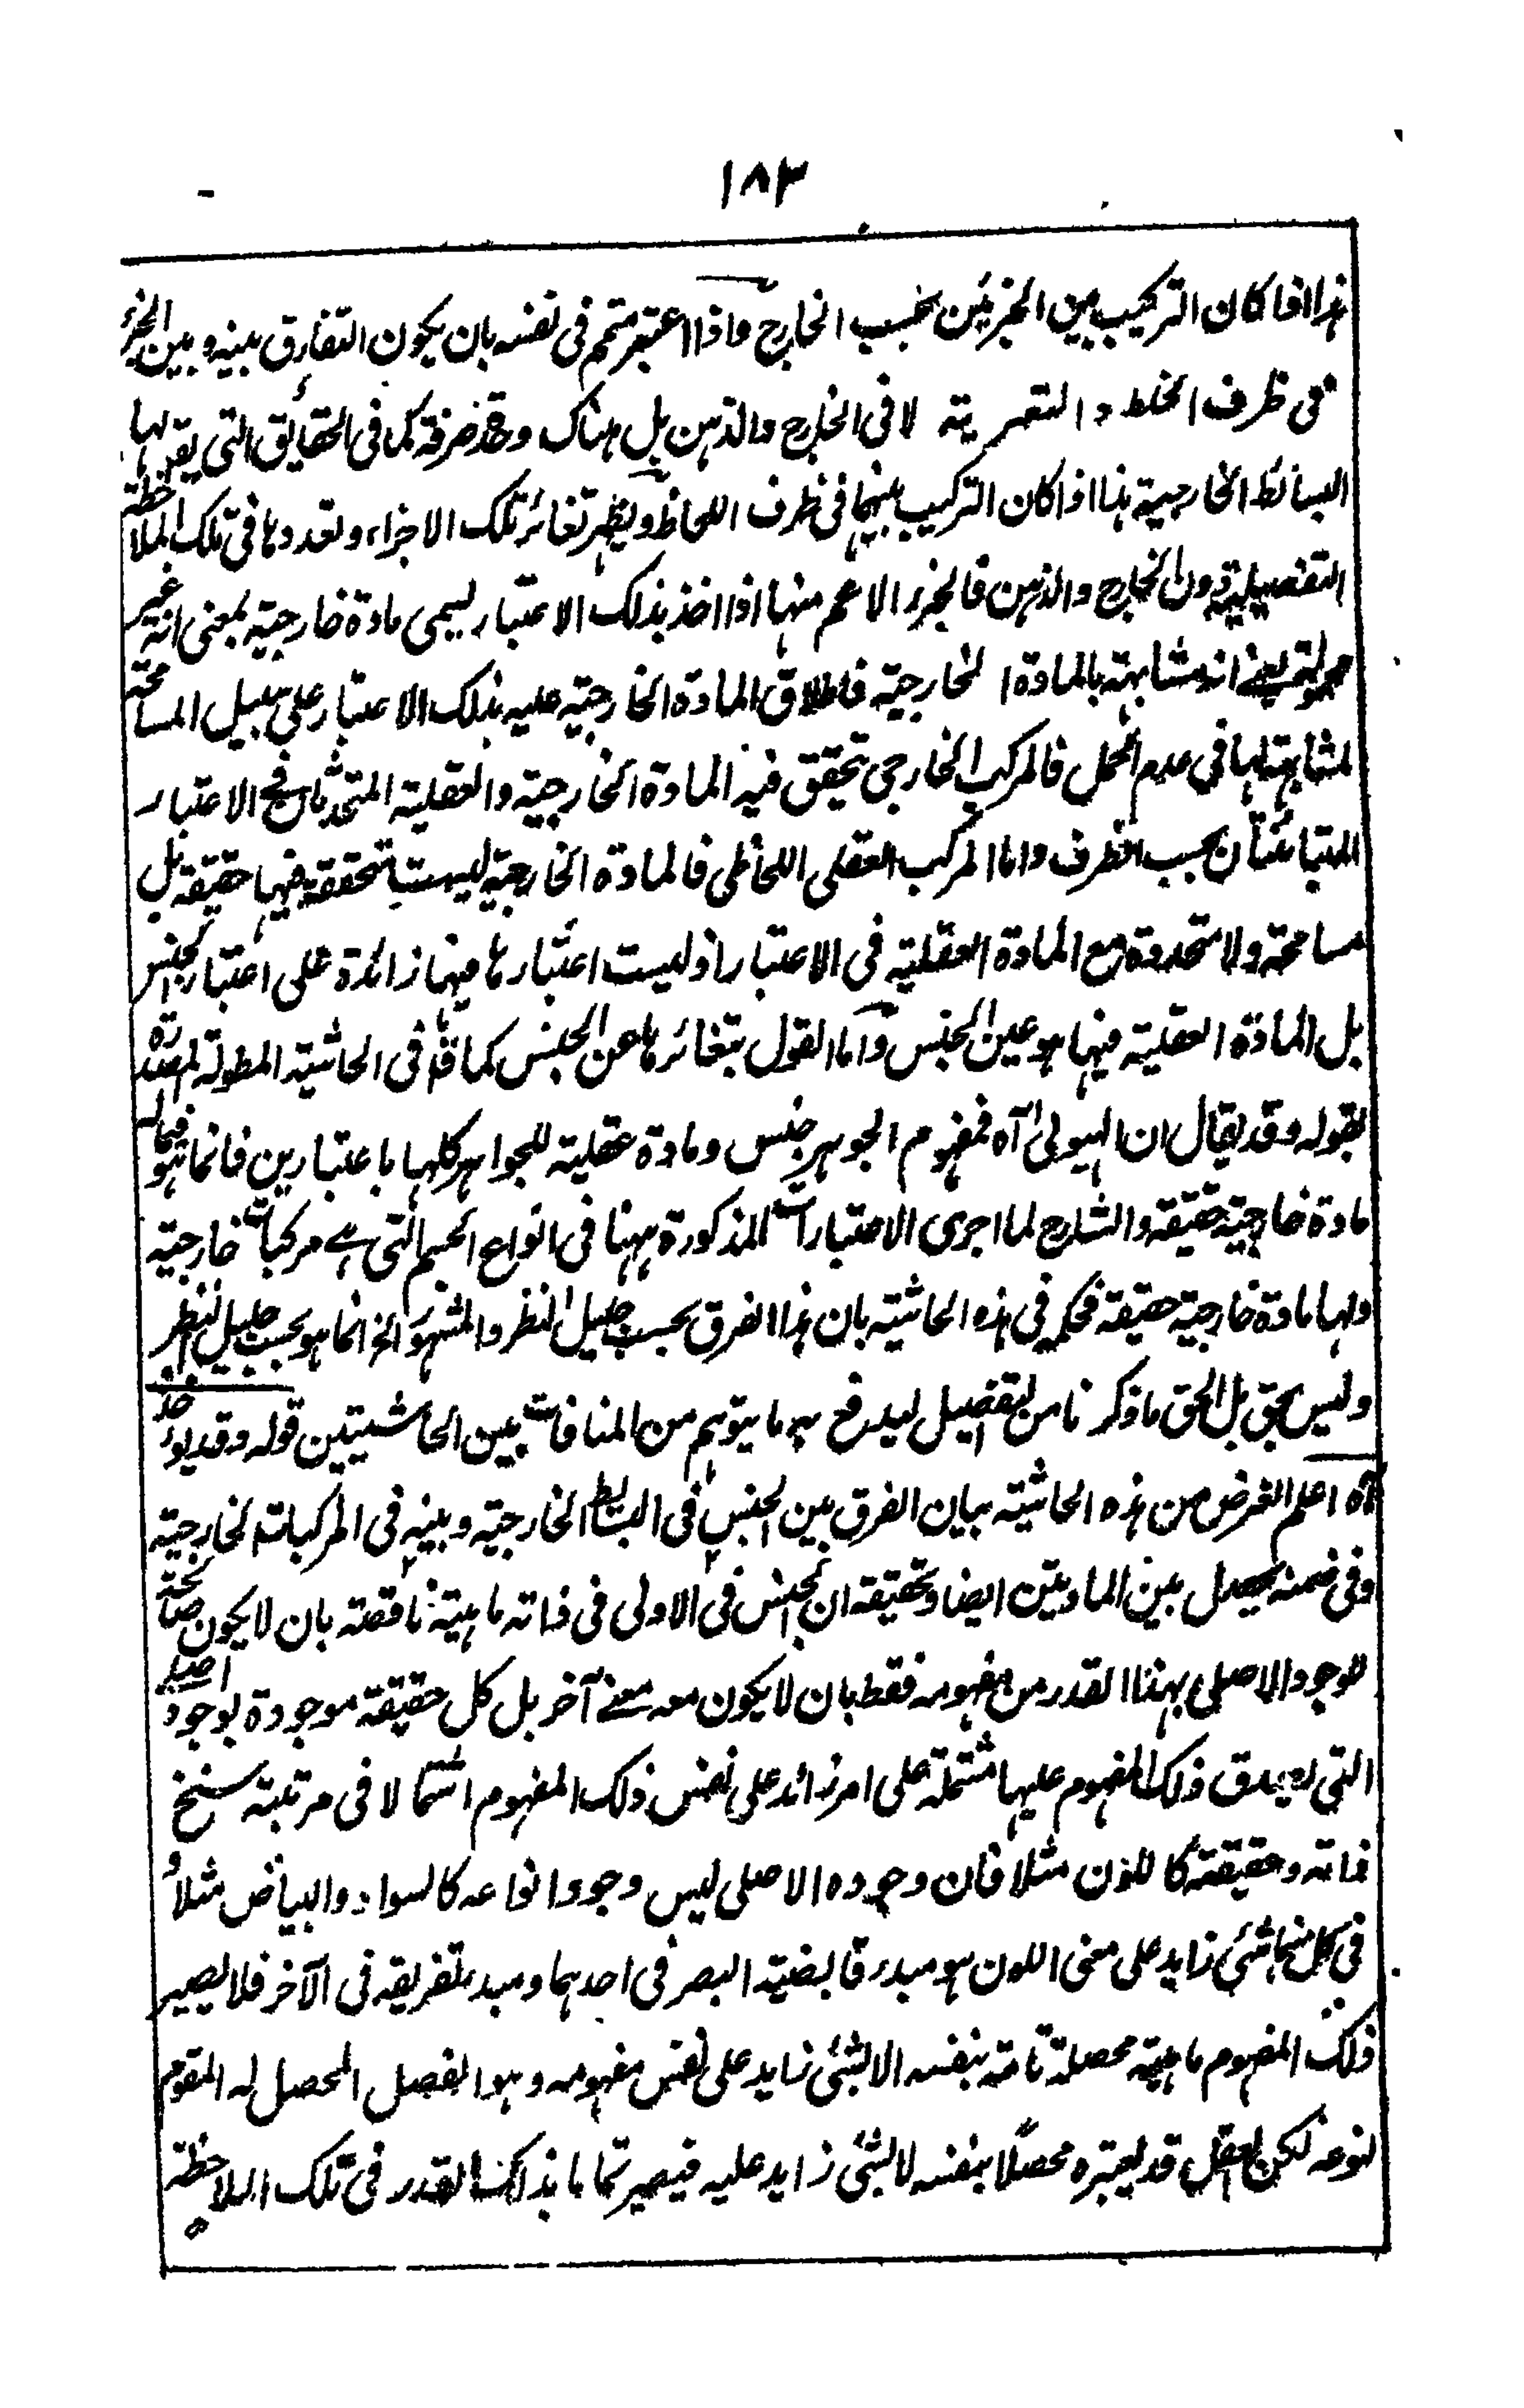 ١٨٣
هذا اذا كان التركيب بين الجزئين بحسب الخارج واذا اعتبر متمم فى نفسه بان يكون التفارق بينه وبين الجزء
فى ظرف الخلط والتعرية لا فى الخارج والذهن بل هناك وحدة صرفة كما فى الحقايق التى يقر لها
البسائط الخارجية هذا اذا كان التركيب بينهما فى ظرف اللحاظ ويظهر تغائر تلك الاجزاء وتعددها فى تلك الملاحظة
التفصيلية دون الخارج والذهن فالجزء الاعم منها اذا اخذ بذلك الاعتبار يسمى مادة خارجية بمعنى انه غير
محمولة يعنے انه مشابهة بالمادة الخارجية فاطلاق المادة الخارجية عليه بذلك الاعتبار على سبيل المسامحة
لمشابهته لها فى عدم الحمل فالمركب الخارجى تحقق فيه المادة الخارجية والعقلية المتحدتان فے الاعتبار
المتبائنتان بحسب الظرف واما المركب العقلى اللحاظى فالمادة الخارجية ليست بمتحققة فيها حقيقة بل
مسامحة ولا متحدة مع المادة العقلية فى الاعتبار اذ ليست اعتبارها فيها زائدة على اعتبار الجنس
بل المادة العقلية فيها هو عين الجنس واما القول بتغائرها عن الجنس كما قال فى الحاشية المطولة المصدرة
بقوله وقد يقال ان الهيولى آه فمفهوم الجوهر جنس ومادة عقلية للجواهر كلها باعتبارين فانما هو فيما له
مادة خارجية حقيقة والشارح لما اجرى الاعتبارات المذكورة ههنا فى انواع الجسم التى هے مركبات خارجية
ولها مادة خارجية حقيقة فحكم فى هذه الحاشية بان هذا الفرق بحسب جليل النظر والمشهور الخ انما هو بحسب جليل النظر
وليس بحق بل الحق ما ذكرنا من التفصيل ليدفع به ما يتوهم من المنافات بين الحاشيتين قوله وقد يوخذ
آه اعلم الغرض من هذه الحاشية بيان الفرق بين الجنس فى البسائط الخارجية وبينه فى المركبات الخارجية
وفى ضمنه يحصل بين المادتين ايضا وتحقيقه ان الجنس فى الاولى فى ذاته ماهية ناقصة بان لا يكون صالحة
للوجود الاصلى بهذا القدر من مفهومه فقط بان لا يكون معه معنے آخر بل كل حقيقة موجودة بوجود اصلى
التى يصدق ذلك المفهوم عليها مشتملة على امر زائد على نفس ذلك المفهوم اشتمالا فى مرتبة سنخ
ذاته وحقيقته كاللون مثلا فان وجوده الاصلى ليس وجود انواعه كالسواد والبياض مثلا و
فى كل منهما شئ زايد على معنى اللون هو مبدء قابضية البصر فى احدهما ومبدء تفريقه فى الآخر فلا يصير
ذلك المفهوم ماهية محصلة تامة بنفسه الا بشئ زايد على نفس مفهومه وهو الفصل المحصل له المقوم
لنوعه لكن العقل قد يعتبره محصلا بنفسه لا بشئ زايد عليه فيصير تماما بذلك القدر فى تلك الملاحظة